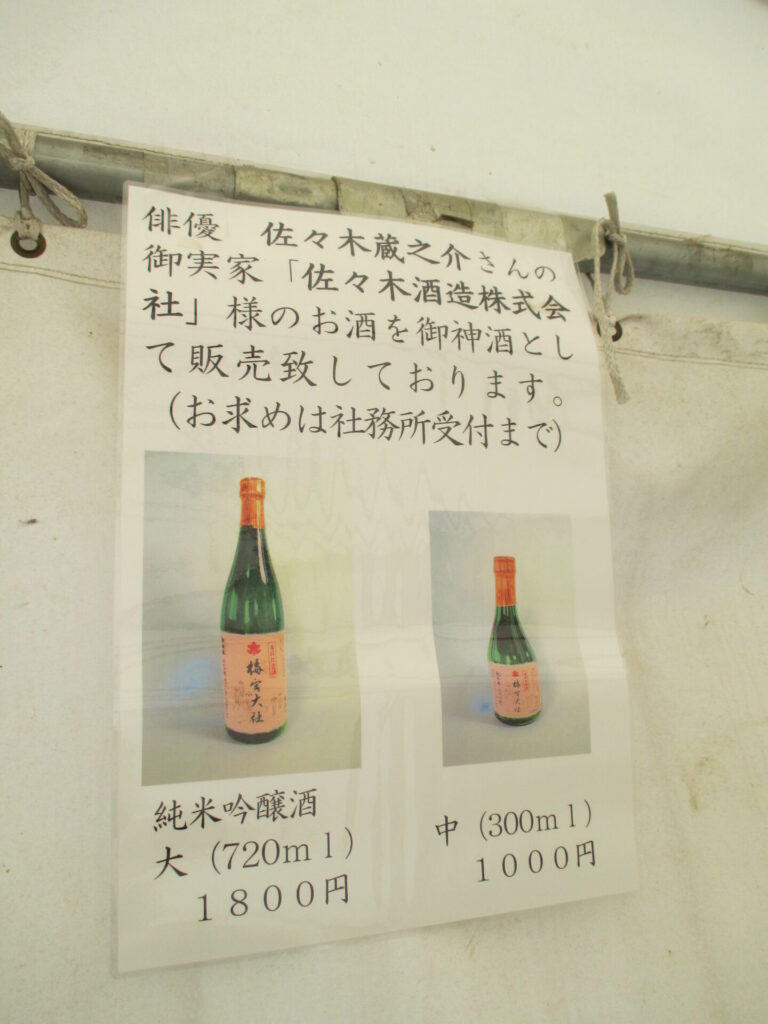 俳優　佐々木蔵之介さんの
御実家「佐々木酒造株式会
社」様のお酒を御神酒とし
て販売致しております。
（お求めは社務所受付まで）
梅宮大社
梅宮大社
純米吟醸酒
大（720ｍｌ）
１８００円
中（300ｍｌ）
１０００円